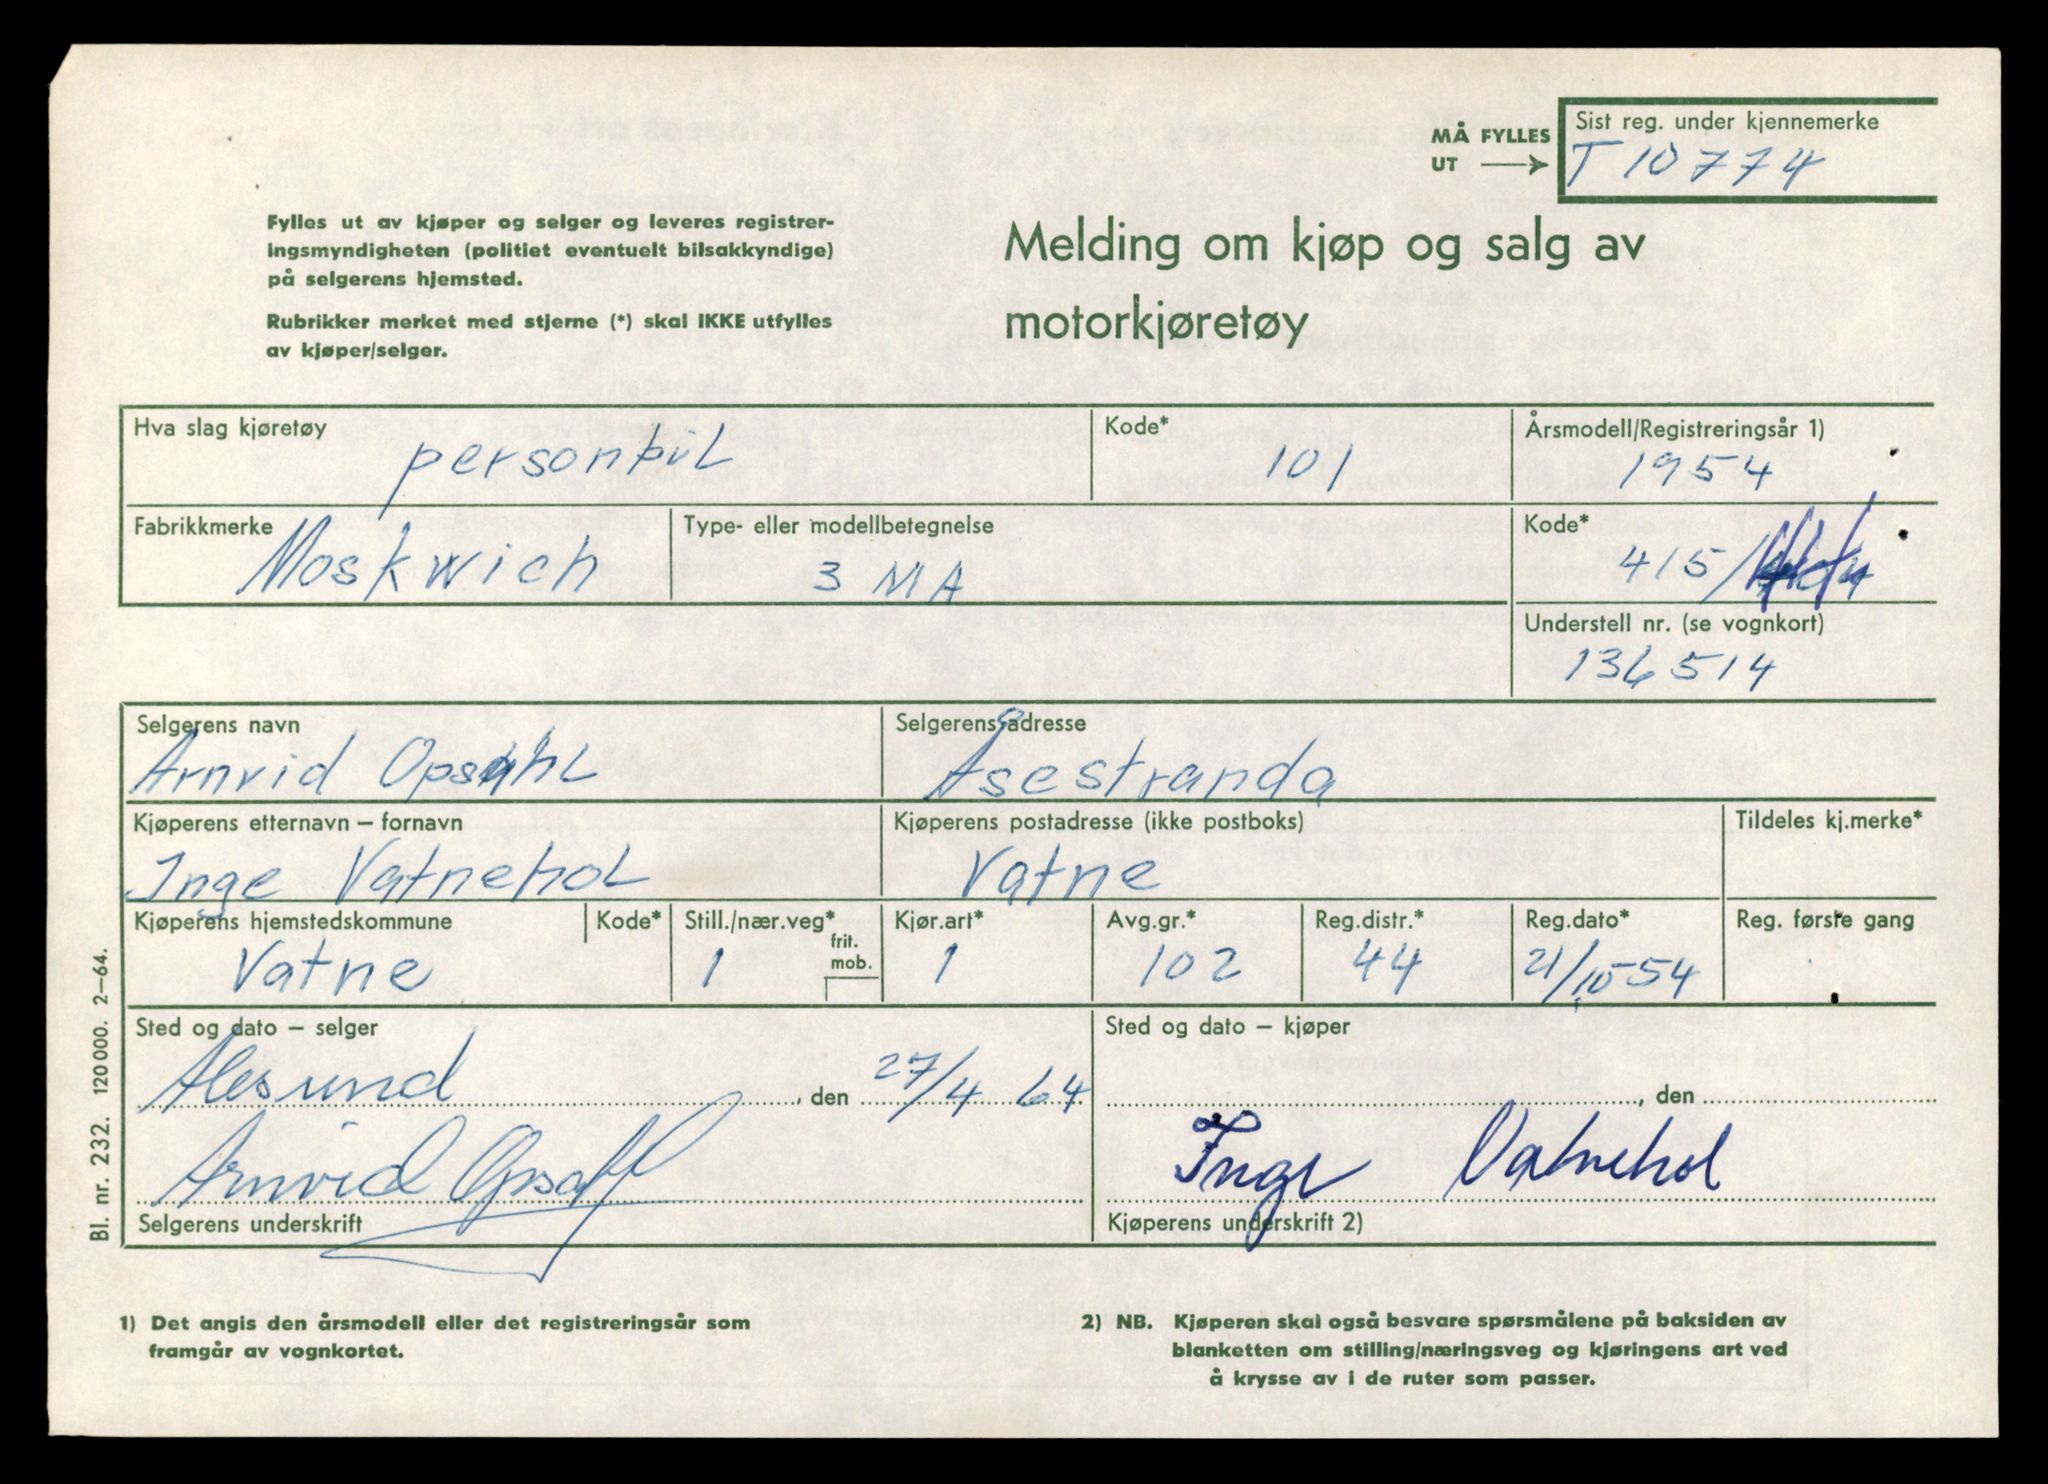 MÅ FYLLES
UT
Sist reg. under kjennemerke
T 10774
Fylles ut av kjøper og selger og leveres registrer-
ingsmyndigheten (politiet eventuelt bilsakkyndige)
på selgerens hjemsted.
Rubrikker merket med stjerne (*) skal IKKE utfylles
av kjøper/selger.
Melding om kjøp og salg av
motorkjøretøy
Hva slag kjøretøy
personbil
Kode*
101
Årsmodell/Registreringsår 1)
1954
Fabrikkmerke
Moskwich
Type- eller modellbetegnelse
3 MA
Kode*
415/
Understell nr. (se vognkort)
136514
Selgerens navn
Arnvid Opsahl
Selgerens adresse
Åsestranda
Kjøperens etternavn – fornavn
Inge Vatnehol
Kjøperens postadresse (ikke postboks)
Vatne
Tildeles kj.merke*
Kjøperens hjemstedskommune
Vatne
Kode*
Still./nær.veg*
1
frit.
mob.
Kjør.art*
1
Avg.gr.*
102
Reg.distr.*
44
Reg.dato*
21/10-54
Reg. første gang
Sted og dato – selger
Alesund, den 27/4 64
Arnvid Opsahl
Selgerens underskrift
Sted og dato – kjøper
, den
Inge Vatnehol
Kjøperens underskrift 2)
Bl. nr. 232. 120 000. 2–64.
1) Det angis den årsmodell eller det registreringsår som
framgår av vognkortet.
2) NB. Kjøperen skal også besvare spørsmålene på baksiden av
blanketten om stilling/næringsveg og kjøringens art ved
å krysse av i de ruter som passer.